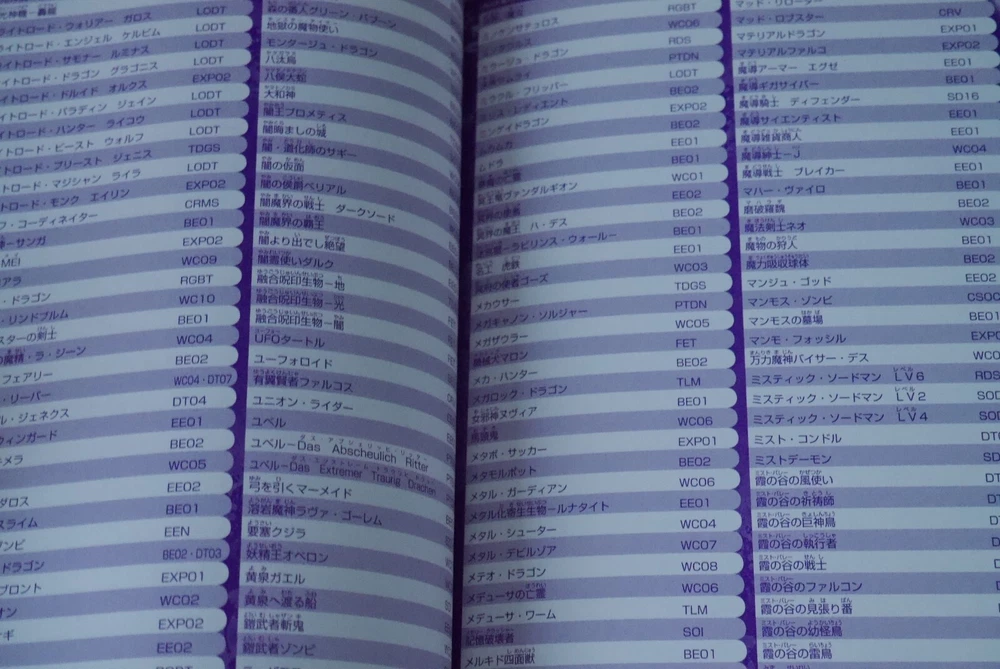 イトロード・ウォリアー ガロス LODT
イトロード・エンジェル ケルビム LODT
イトロード・サモナー ルミナス LODT
イトロード・ドラゴン グラゴニス LODT
イトロード・ドルイド オルクス EXP02
イトロード・パラディン ジェイン LODT
イトロード・ハンター ライコウ LODT
イトロード・ビースト ウォルフ LODT
トロード・プリースト ジェニス TDGS
トロード・マジシャン ライラ LODT
トロード・モンク エイリン EXP02
フ・コーディネイター CRMS
ーサンガ BE01
MEI EXP02
アラ WC09
・ドラゴン RGBT
・リンドブルム WC10
スターの剣士 BE01
の魔精・ラ・ジーン WC04
フェアリー BE02
・リーパー WC04・DT07
ル・ジェネクス DT04
ウィンガード EE01
メラ BE02
WC05
ダロス EE02
スライム BE01
ンビ EEN
ドラゴン BE02・DT03
プロント EXP01
オン WC02
ナギ EXP02
EE02
森の番人グリーン・バブーン
地獄の魔物使い
モンタージュ・ドラゴン
八汰烏
八俣大蛇
大和神
闇王プロメティス
闇晦ましの城
闇・道化師のサギー
闇の仮面
闇の侯爵ベリアル
闇魔界の戦士 ダークソード
闇魔界の覇王
闇より出でし絶望
闇霊使いダルク
融合呪印生物－地
融合呪印生物－光
融合呪印生物－闇
UFOタートル
ユーフォロイド
有翼賢者ファルコス
ユニオン・ライダー
ユベル
ユベル－Das Abscheulich Ritter
ユベル－Das Extremer Traurig Drachen
弓を引くマーメイド
溶岩魔神ラヴァ・ゴーレム
要塞クジラ
妖精王オベロン
黄泉ガエル
黄泉へ渡る船
鎧武者斬鬼
鎧武者ゾンビ
ミノケンサテュロス RGBT
ミノタウルス WC06
ミラージュ・ドラゴン RDS
未来サムライ PTDN
ミラクル・フリッパー LODT
ミス・レディエント BE02
ニンゲイドラゴン EXP02
ムカムカ BE02
ムドラ EE01
BE01
冥王竜ヴァンダルギオン WC01
冥界の使者 EE02
冥界の魔王 ハ・デス BE02
迷宮壁－ラビリンス・ウォール－ BE01
鉄 EE01
冥府の使者ゴーズ WC03
メカウサー TDGS
メガキャノン・ソルジャー PTDN
メガザウラー WC05
機械犬マロン FET
メカ・ハンター BE02
メガロック・ドラゴン TLM
女邪神ヌヴィア BE01
馬頭鬼 WC06
メタボ・サッカー EXP01
メタモルポット BE02
メタル・ガーディアン WC06
メタル化寄生生物－ルナタイト EE01
メタル・シューター WC04
メタル・デビルゾア WC07
メテオ・ドラゴン WC08
メデューサの亡霊 WC06
メデューサ・ワーム TLM
記憶破壊者 SOI
メルキド四面獣 BE01
マッド・リローダー
マッド・ロブスター CRV
マテリアルドラゴン EXP01
マテリアルファルコ EXP02
魔導アーマー エグゼ EE01
魔導ギガサイバー BE01
魔導騎士 ディフェンダー SD16
魔導サイエンティスト EE01
魔導雑貨商人 EE01
魔導紳士－J WC04
魔導戦士 ブレイカー EE01
マハー・ヴァイロ BE01
磨破羅魏 BE02
魔法剣士ネオ WC03
魔物の狩人 BE01
魔力吸収球体 BE02
マンジュ・ゴッド EE02
マンモス・ゾンビ CSOC
マンモスの墓場 BE01
マンモ・フォッシル EXP
万力魔神バイサー・デス WC0
ミスティック・ソードマン LV6 RDS
ミスティック・ソードマン LV2 SOD
ミスティック・ソードマン LV4 SOD
ミスト・コンドル DT
ミストデーモン SD
霞の谷の風使い DT
霞の谷の祈祷師 DT
霞の谷の巨神鳥 DT
霞の谷の執行者 DT
霞の谷の戦士 D
霞の谷のファルコン D
霞の谷の見張り番 D
霞の谷の幼怪鳥
霞の谷の雷鳥